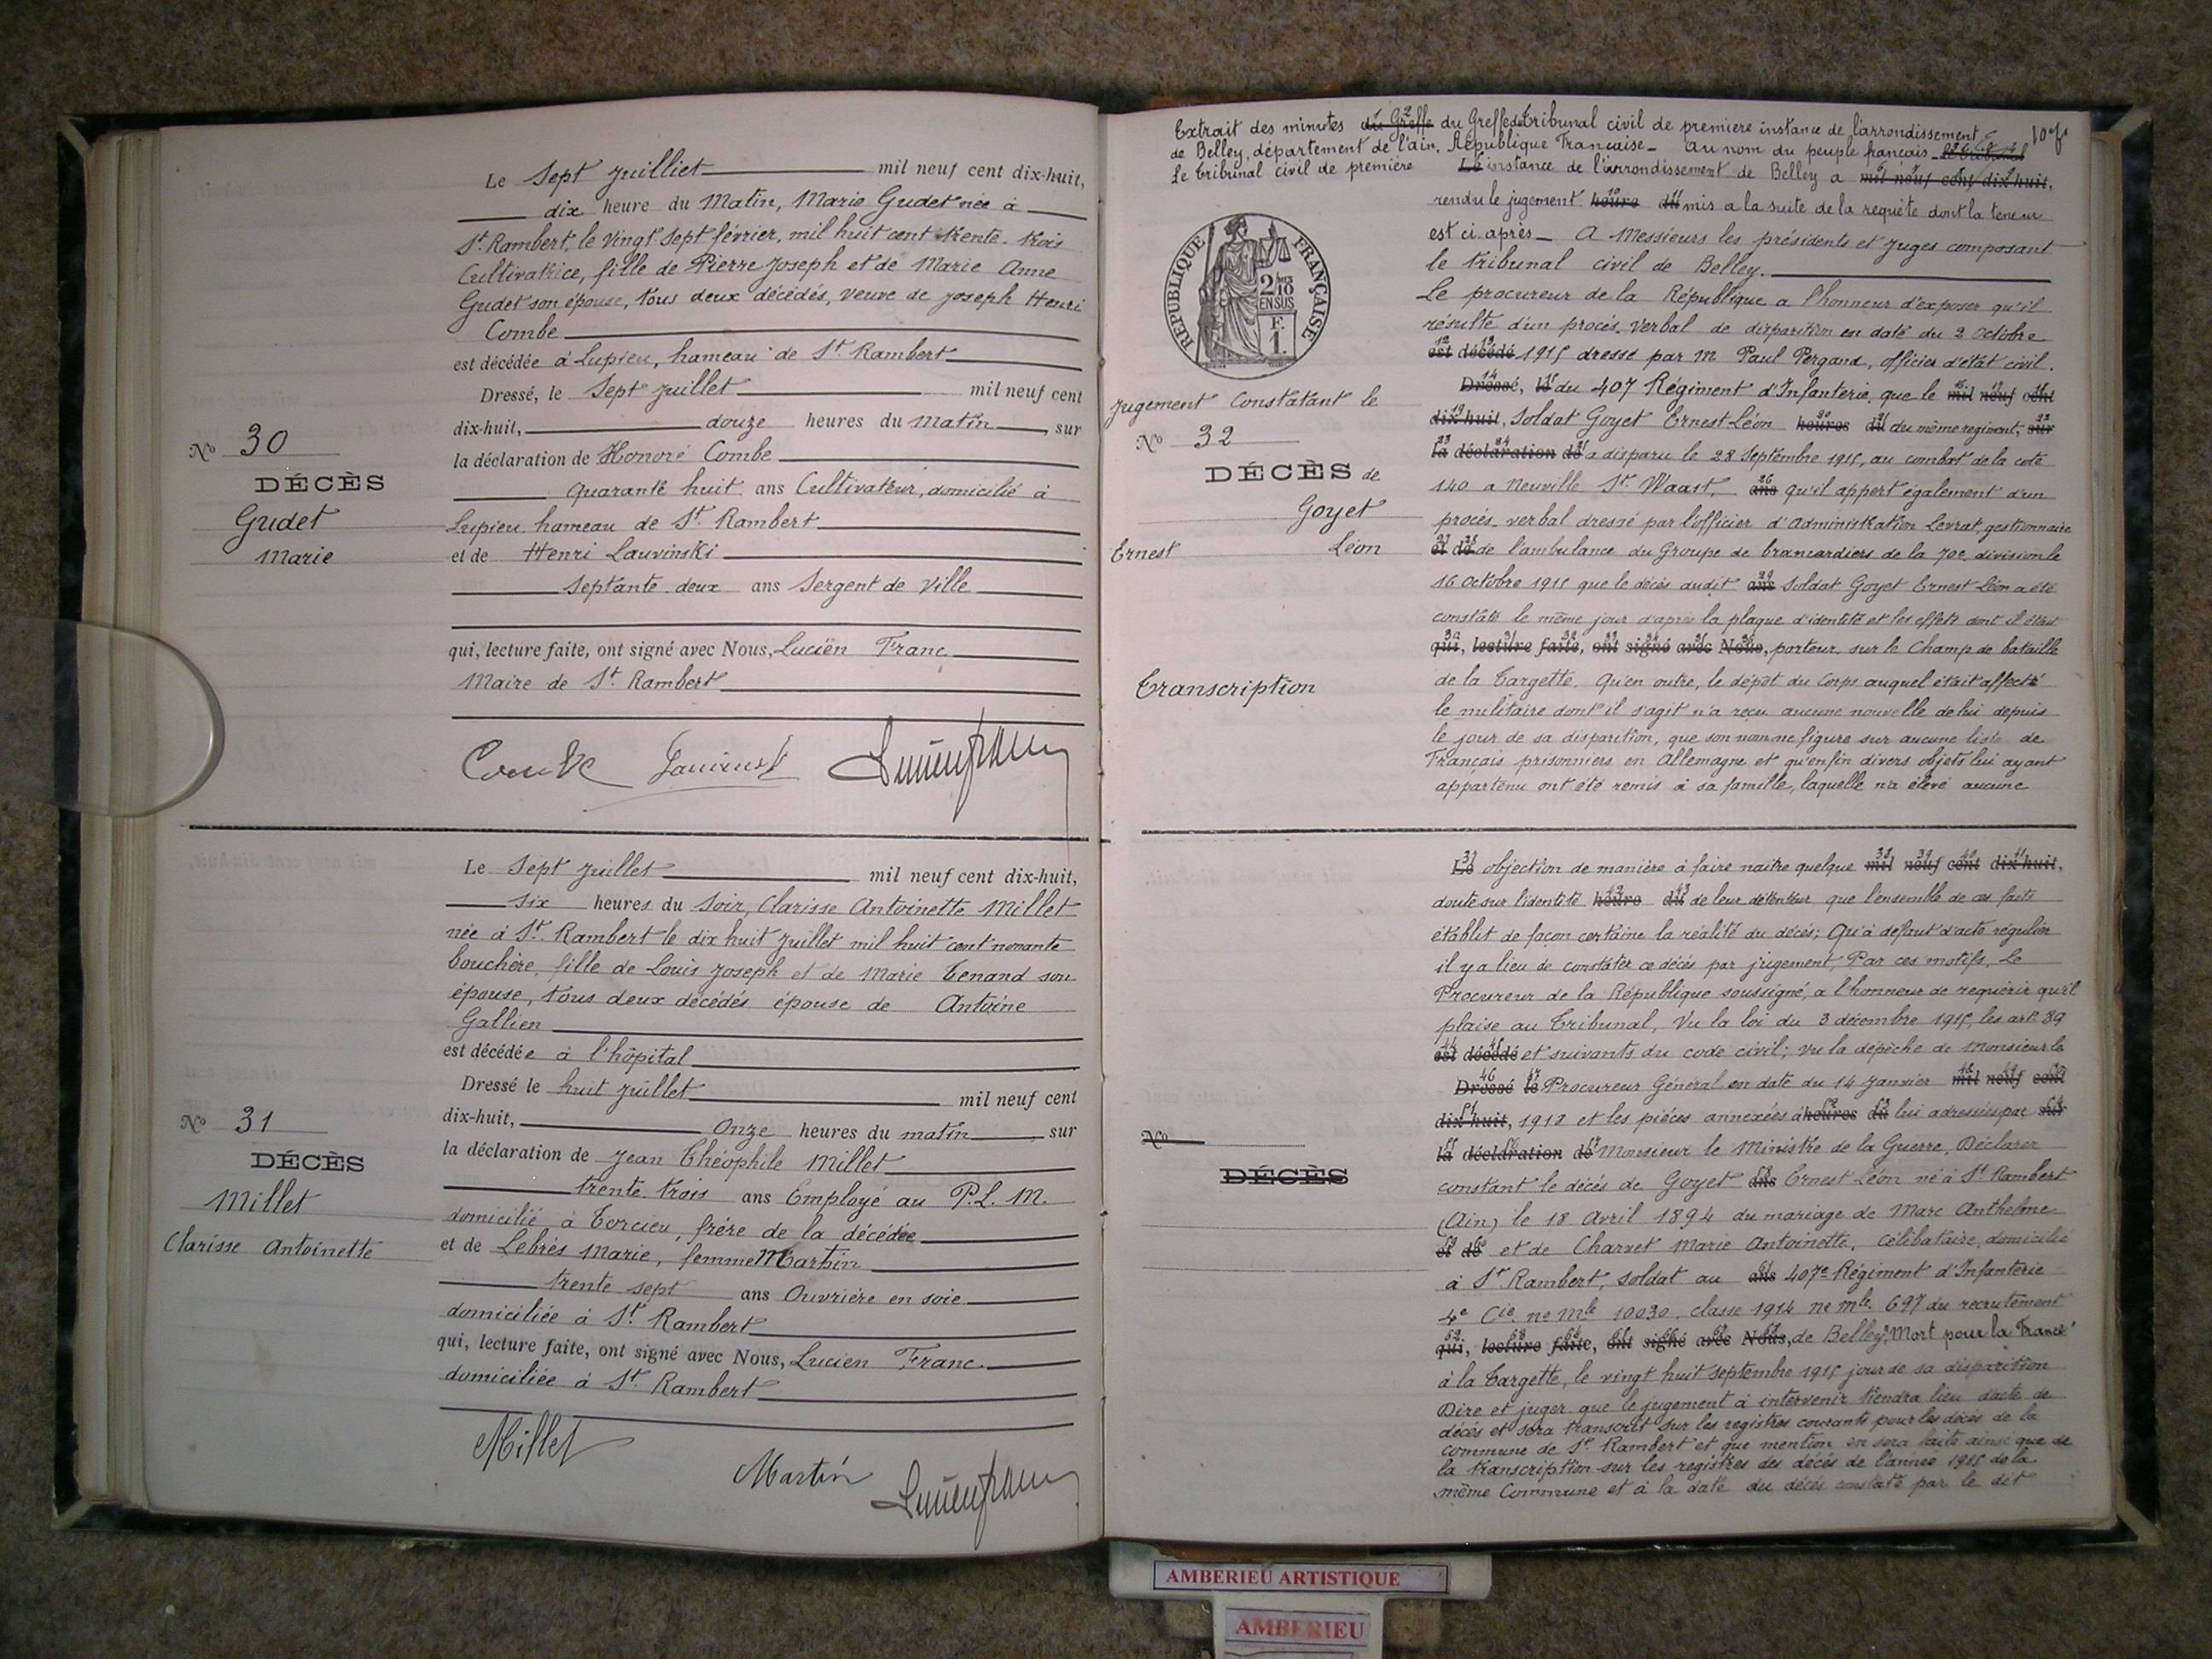 Le Sept Juilliet mil neuf cent dix-huit,
dix heure du Matin, Marie Gudet née à
St Rambert, le Vingt Sept février, mil huit cent trente trois
Cultivatrice, fille de Pierre Joseph et de Marie Anne
Gudet son épouse, tous deux décédés, veuve de Joseph Henri
Combe
est décédée à Lupieu, hameau de St Rambert
Dressé, le Sept Juillet mil neuf cent
dix-huit, douze heures du Matin, sur
No 30
la déclaration de Honoré Combe
DÉCÈS
quarante huit ans Cultivateur, domicilié à
Gudet
Lupieu hameau de St Rambert
Marie
et de Henri Lauvinski
Septante deux ans Sergent de Ville
qui, lecture faite, ont signé avec Nous, Lucien Franc
Maire de St Rambert
Combe
Le Sept Juillet mil neuf cent dix-huit,
six heures du Soir, Clarisse Antoinette Millet
née à St Rambert le dix huit Juillet mil huit cent nonante
bouchère, fille de Louis Joseph et de Marie Tenand son
épouse, tous deux décédés épouse de Antoine
Gallien
est décédée à l'hôpital
Dressé le huit Juillet mil neuf cent
No 31
dix-huit, Onze heures du matin, sur
DÉCÈS
la déclaration de Jean Théophile Millet
Millet
trente trois ans Employé au P.L.M.
Clarisse Antoinette
domicilié à Torcieu, frère de la décédée
et de Lebrès Marie, femme Martin
trente sept ans Ouvrière en soie
domiciliée à St Rambert
qui, lecture faite, ont signé avec Nous, Lucien Franc.
domiciliée à St Rambert
Millet
Martin
Extrait des minutes du Greffe du Greffe du tribunal civil de premiere instance de l'arrondissement
de Belley, département de l'ain. République Française - au nom du peuple français - le tribunal
Le tribunal civil de première Le instance de l'arrondissement de Belley a mil neuf cent dix-huit,
rendu le jugement heure du mis a la suite de la requête dont la teneur
est ci après - A Messieurs les présidents et Juges composant
le tribunal civil de Belley.
RÉPUBLIQUE FRANÇAISE
2/10 EN SUS
F. 1.
Le procureur de la République a l'honneur d'exposer qu'il
résulte d'un procès verbal de disparition en date du 2 Octobre
est décédé 1915 dressé par M Paul Pergand, officier d'état civil.
Dressé, le du 407 Régiment d'Infanterie, que le mil neuf cent
Jugement Constatant le
dix-huit, Soldat Goyet Ernest Léon heures du du même regiment, sur
No 32
la déclaration de a disparu le 28 Septembre 1915, au combat de la cote
DÉCÈS de
140 a Neuville St Waast, ans qu'il appert également d'un
Goyet
procès verbal dressé par l'officier d'Administration Levrat, gestionnaire
Ernest Léon
et de de l'ambulance du Groupe de brancardiers de la 70e division le
16 Octobre 1915 que le décès dudit ans Soldat Goyet Ernest Léon a été
constaté le même jour d'après la plaque d'identité et les effets dont il était
qui, lecture faite, ont signé avec Nous, porteur sur le Champ de bataille
Transcription
de la Targette. Qu'en outre, le dépôt du Corps auquel était affecté
le militaire dont il s'agit n'a reçu aucune nouvelle de lui depuis
le jour de sa disparition, que son nom ne figure sur aucune liste de
Français prisonniers en Allemagne et qu'enfin divers objets lui ayant
appartenu ont été remis à sa famille, laquelle n'a élevé aucune
Le objection de manière à faire naitre quelque mil neuf cent dix-huit,
doute sur l'identité heure du de leur détenteur que l'ensemble de ces faits
établit de façon certaine la réalité du décès; Qu'à défaut d'acte régulier
il y a lieu de constater ce décès par jugement, Par ces motifs, Le
Procureur de la République soussigné, a l'honneur de requérir qu'il
plaise au Tribunal, Vu la loi du 3 décembre 1915, les art. 89
est décédé et suivants du code civil; vu la dépêche de Monsieur le
Dressé le Procureur Général en date du 14 Janvier mil neuf cent
dix-huit, 1918 et les pièces annexées à heures du lui adressées par sur
No
la déclaration de Monsieur le Ministre de la Guerre, Déclarer
DÉCÈS
constant le décès de Goyet ans Ernest Léon né à St Rambert
(Ain) le 18 Avril 1894 du mariage de Marc Anthelme
et de et de Charvet Marie Antoinette, célibataire, domicilié
à St Rambert, soldat au ans 407e Régiment d'Infanterie
4e Cie ne Mle 10030, classe 1914 ne mle 697 du recrutement
qui, lecture faite, ont signé avec Nous, de Belley, "Mort pour la France"
à la Targette, le vingt huit Septembre 1915 jour de sa disparition
Dire et juger que le jugement à intervenir tiendra lieu d'acte de
décès et sera transcrit sur les registres courants pour les décès de la
commune de St Rambert et que mention en sera faite ainsi que de
la transcription sur les registres des décès de l'année 1915 de la
même Commune et à la date du décès constaté par le dit
AMBERIEU ARTISTIQUE
AMBERIEU